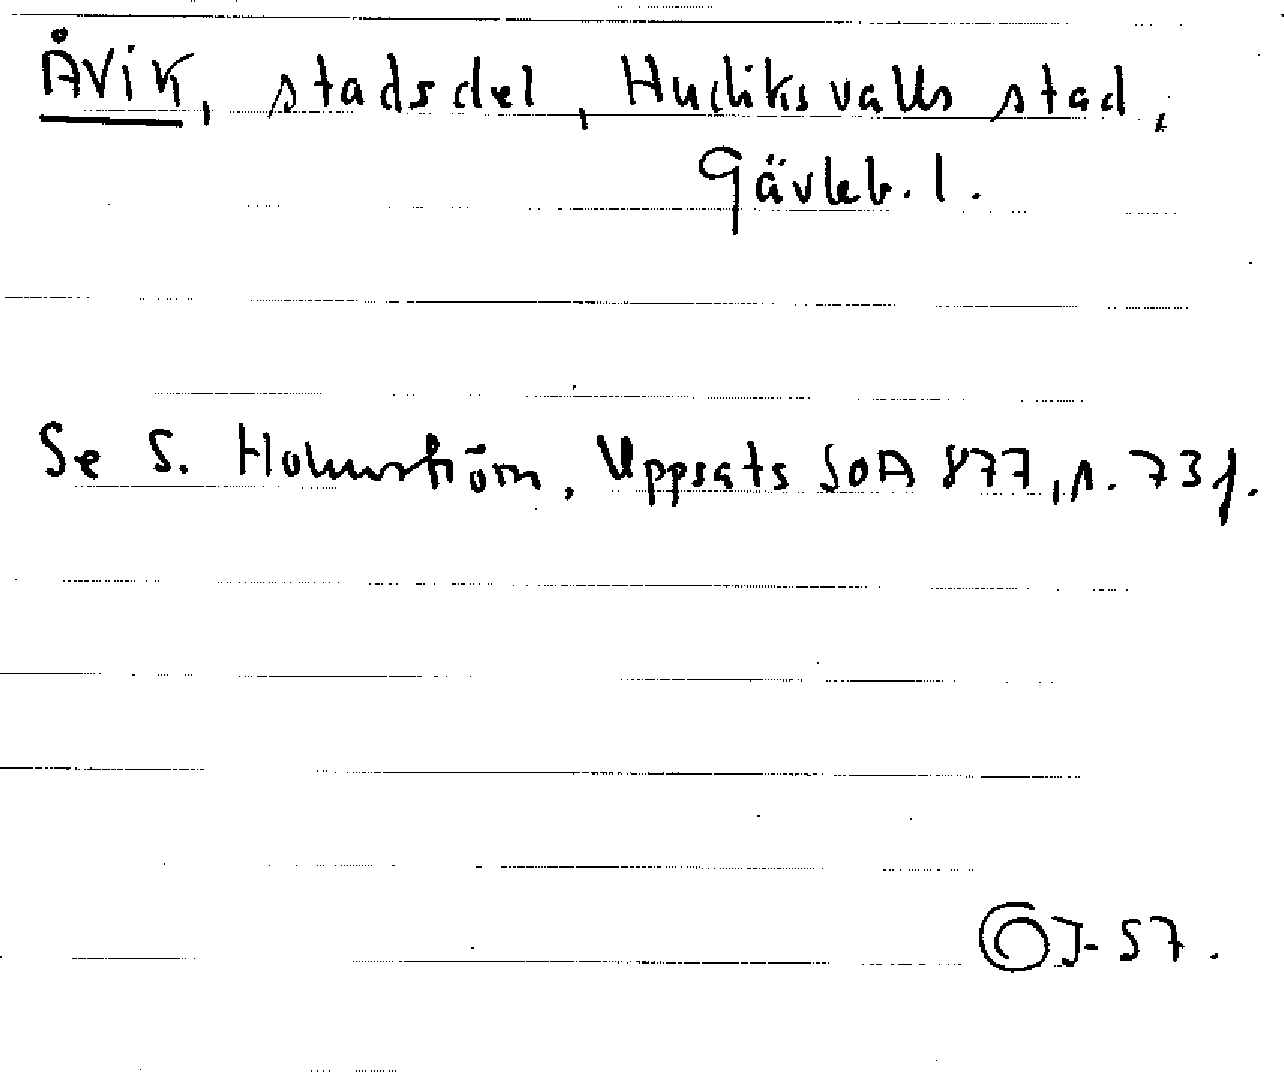 Åvik, stadsdel, Hudiksvalls stad,
Gävleb. l.
Se S. Holmström, Uppsats SOA 877, s. 73 f.
-57.